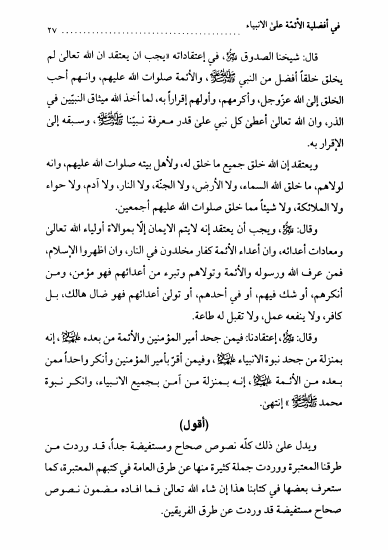 في أفضلية الأئمة على الانبياء ........................................ ٢٧
قال: شيخنا الصدوق ﷀ، في إعتقاداته «يجب ان يعتقد ان الله تعالىٰ لم
يخلق خلقاً أفضل من النبي ﷺ، والأئمة صلوات الله عليهم، وانهم أحب
الخلق إلىٰ الله عزّوجل، وأكرمهم، وأولهم إقراراً به، لما أخذ الله ميثاق النبيّين في
الذر، وان الله تعالىٰ أعطىٰ كل نبي علىٰ قدر معرفة نبيّنا ﷺ، وسبقه إلىٰ
الإقرار به.
ويعتقد إن الله خلق جميع ما خلق له، ولأهل بيته صلوات الله عليهم، وانه
لولاهم، ما خلق الله السماء، ولا الأرض، ولا الجنّة، ولا النار، ولا آدم، ولا حواء
ولا الملائكة، ولا شيئاً مما خلق صلوات الله عليهم أجمعين.
وقال: ، ويجب أن يعتقد إنه لايتم الايمان إلّا بموالاة أولياء الله تعالىٰ
ومعادات أعدائه، وان أعداء الأئمة كفار مخلدون في النار، وان اظهروا الإسلام،
فمن عرف الله ورسوله والأئمة وتولاهم وتبرء من أعدائهم فهو مؤمن، ومـن
أنكرهم، أو شك فيهم، أو في أحدهم، أو تولىٰ أعدائهم فهو ضال هالك، بـل
كافر، ولا ينفعه عمل، ولا تقبل له طاعة.
وقال: ، إعتقادنا: فيمن جحد أمير المؤمنين والأئمة من بعده ، إنه
بمنزلة من جحد نبوة الانبياء ، وفيمن أقرّ بأمير المؤمنين وأنكر واحداً ممن
بعده مـن الأئـمة ، إنـه بـمنزلة مـن آمـن بـجميع الانـبياء، وانكـر نبوة
محمد ﷺ» إنتهىٰ.
(أقول)
ويدل علىٰ ذلك كلّه نصوص صحاح ومستفيضة جداً، قـد وردت مـن
طرقنا المعتبرة ووردت جملة كثيرة منها عن طرق العامة في كتبهم المعتبرة، كما
ستعرف بعضها في كتابنا هذا إن شاء الله تعالىٰ فـما افاده مـضمون نـصوص
صحاح مستفيضة قد وردت عن طرق الفريقين.